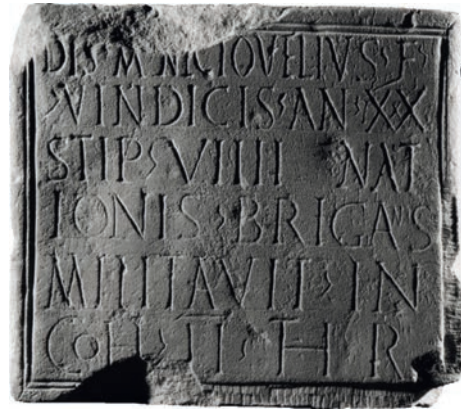 DIS · M · NECTOVELIVS · F ·
· VINDICIS · AN · XX
STIP · VIIII NAT
IONIS · BRIGANS
MILITAVIT · IN
COH · II · THR